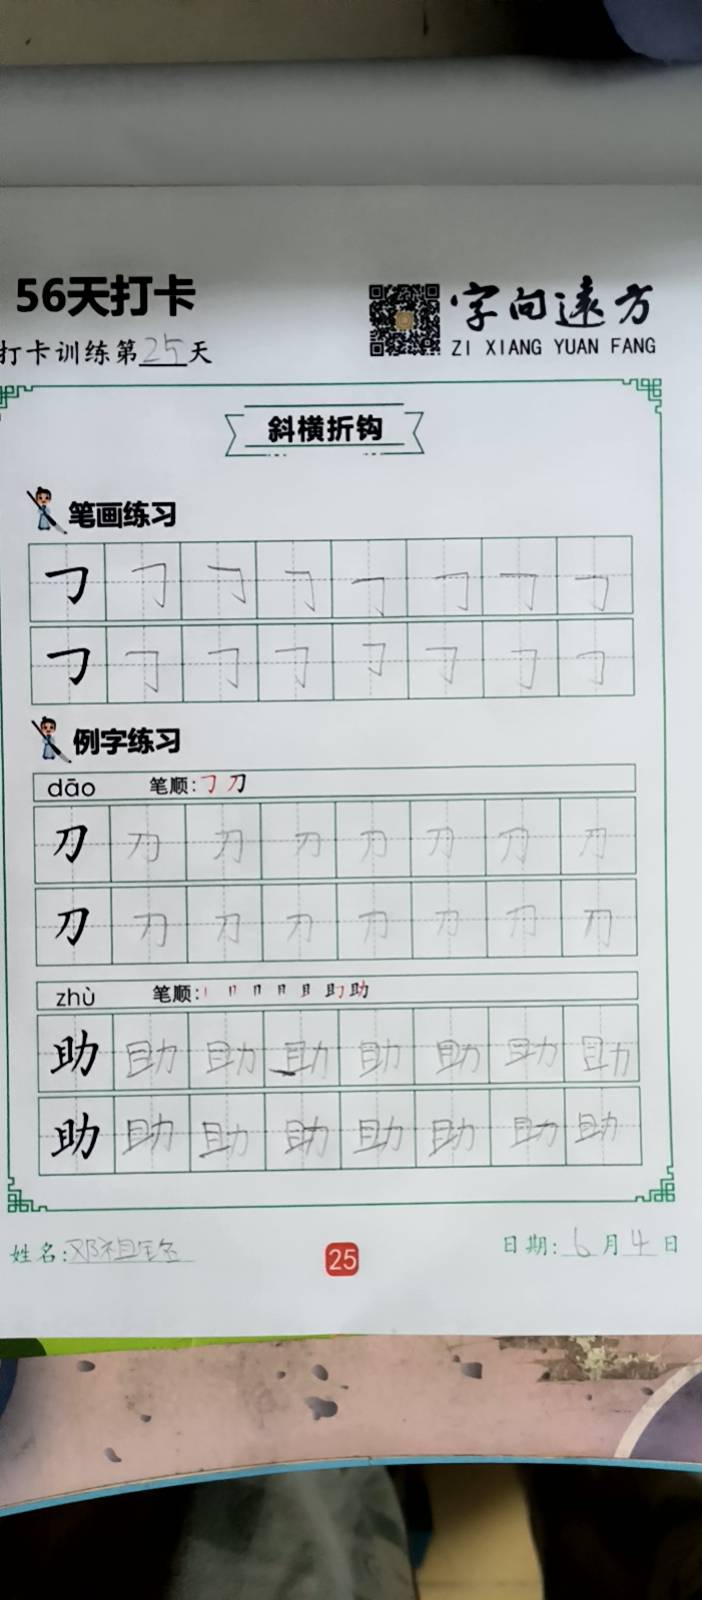 56天打卡
字向遠方
ZI XIANG YUAN FANG
打卡训练第25天
斜横折钩
笔画练习
㇆ ㇆ ㇆ ㇆ ㇆ ㇆ ㇆ ㇆
㇆ ㇆ ㇆ ㇆ ㇆ ㇆ ㇆ ㇆
例字练习
dāo 笔顺:㇆ 刀
刀 刀 刀 刀 刀 刀 刀 刀
刀 刀 刀 刀 刀 刀 刀 刀
zhù 笔顺:丨 冂 冃 月 且 助
助 助 助 助 助 助 助 助
助 助 助 助 助 助 助 助
姓名:邓祖铭
25
日期:6月4日